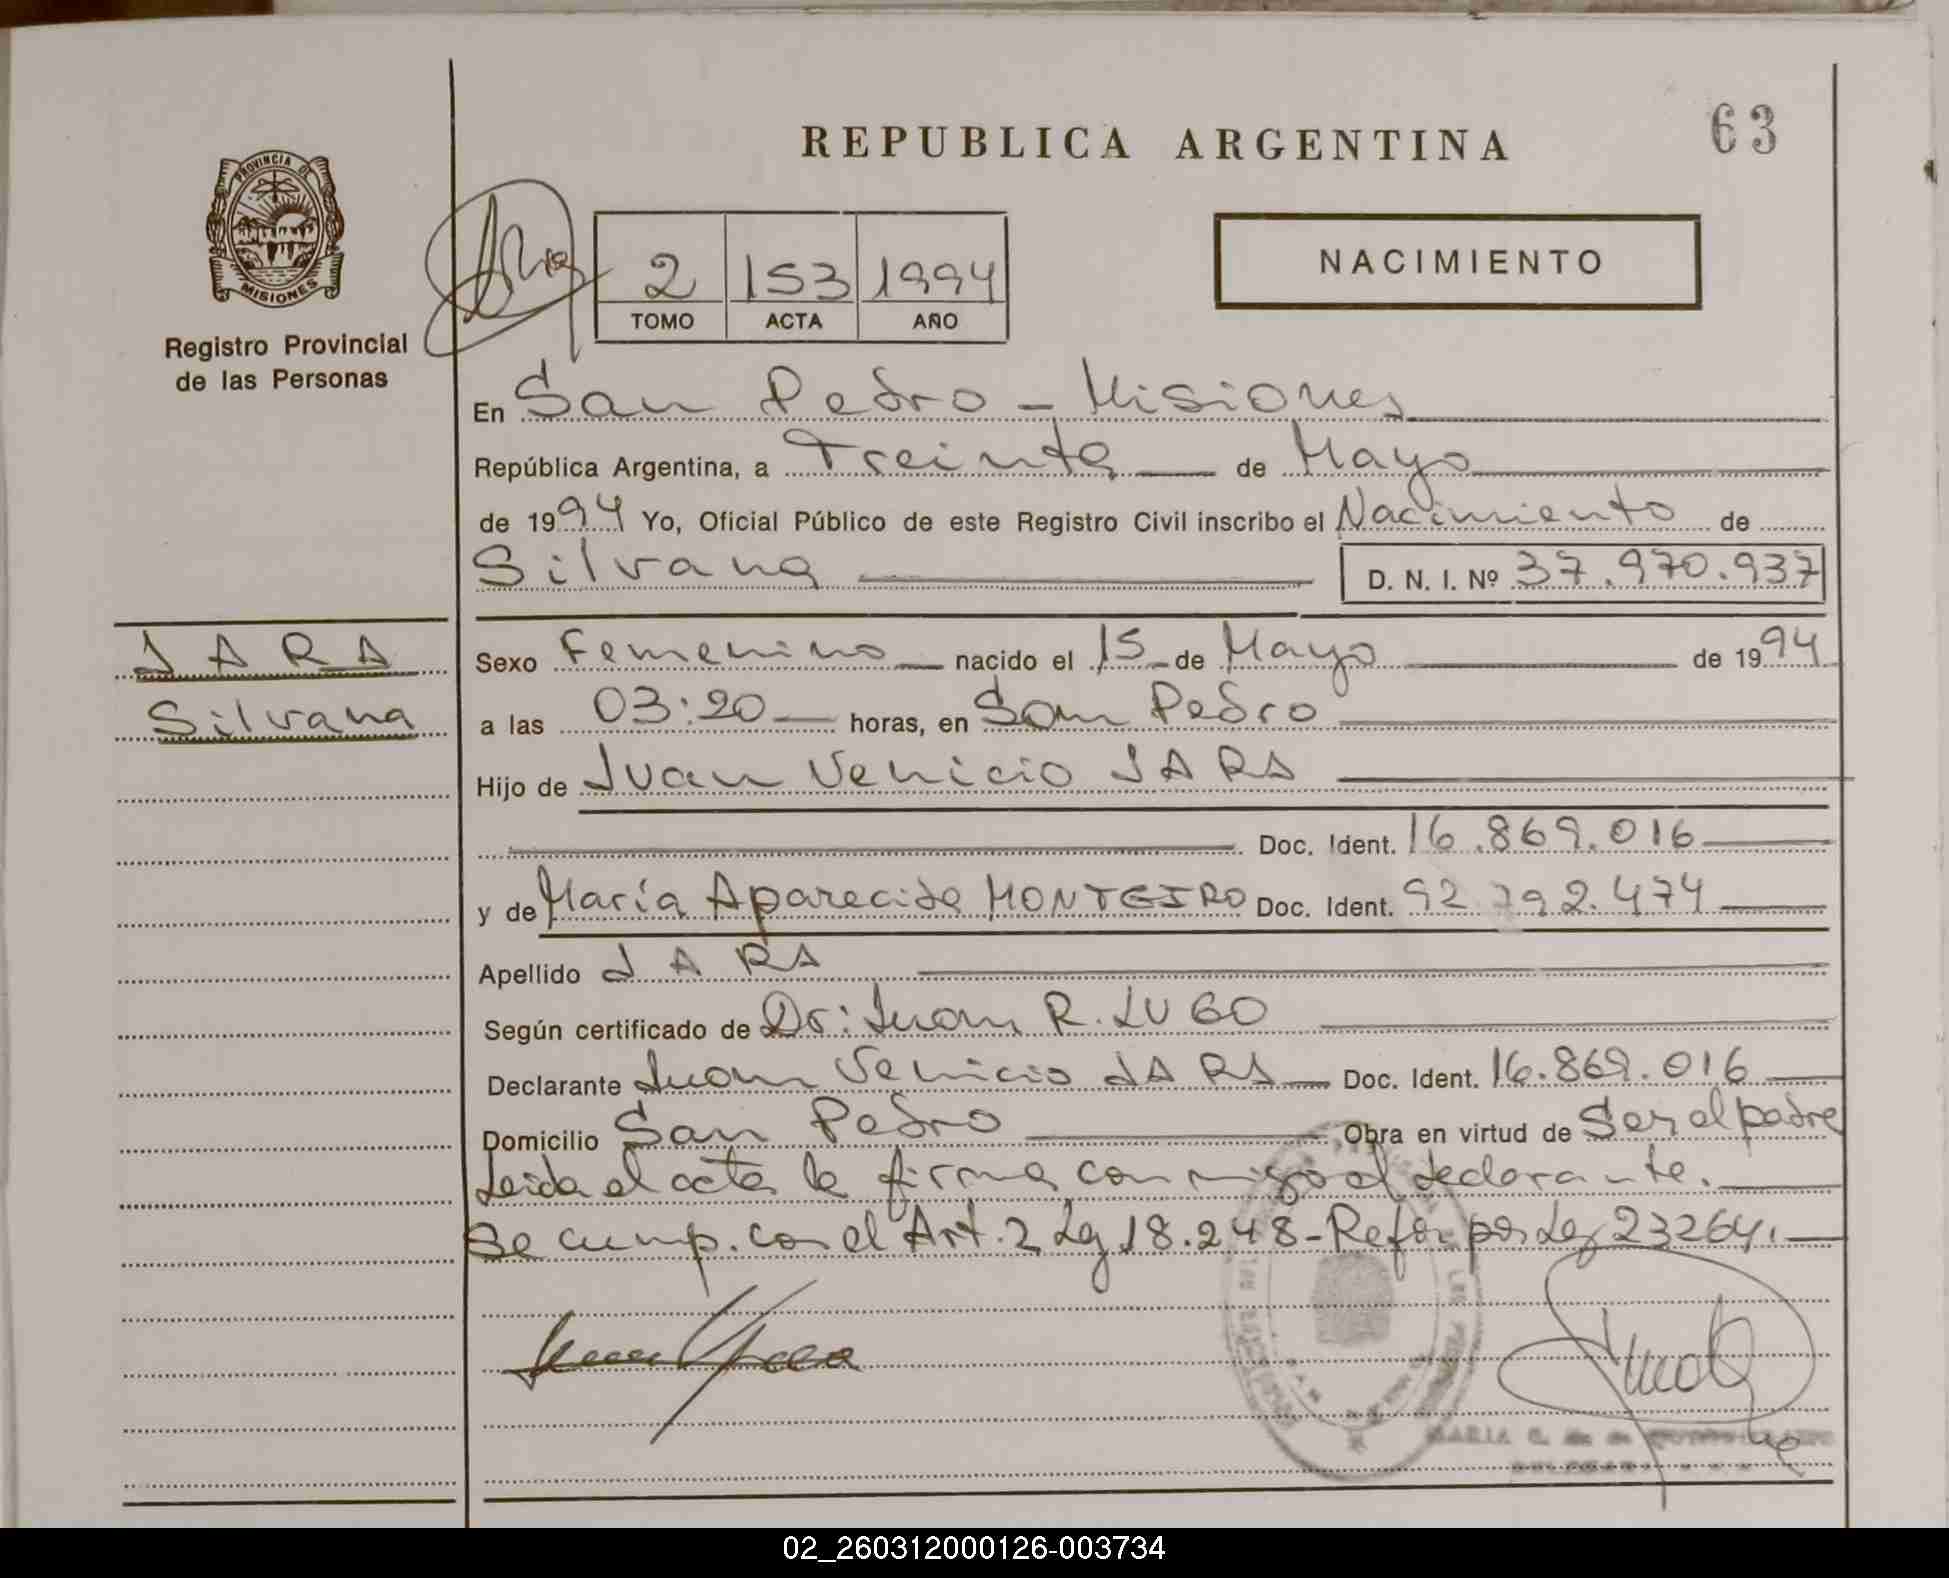 63
REPUBLICA ARGENTINA
PROVINCIA DE
MISIONES
Registro Provincial
de las Personas
2 153 1994
TOMO ACTA AÑO
NACIMIENTO
En San Pedro - Misiones
República Argentina, a Treinta de Mayo
de 1994 Yo, Oficial Público de este Registro Civil inscribo el Nacimiento de
Silvana D. N. I. Nº 37.970.937
JARA
Silvana
Sexo Femenino nacido el 15 de Mayo de 1994
a las 03:20 horas, en San Pedro
Hijo de Juan Venicio JARA
Doc. Ident. 16.869.016
y de María Aparecida MONTEIRO Doc. Ident. 92.792.474
Apellido JARA
Según certificado de Dr: Juan R. LUGO
Declarante Juan Venicio JARA Doc. Ident. 16.869.016
Domicilio San Pedro Obra en virtud de Ser el padre
Leida el acta la firma conmigo el declarante.
Se cump. con el Art. 2 Ley 18.248 - Refor por Ley 23264.
MARIA
02_260312000126-003734